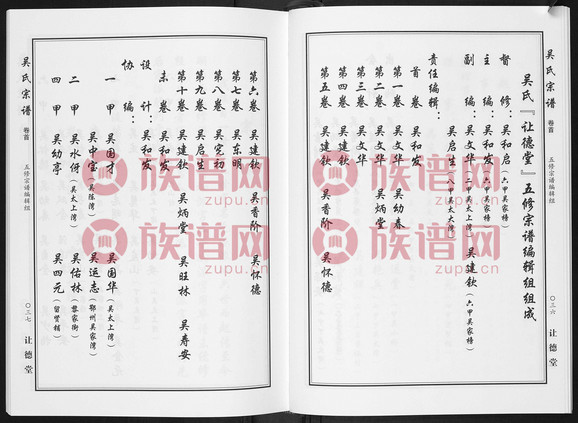 吴氏宗谱
卷首
五修宗谱编辑组
〇三六
让德堂
吴氏『让德堂』五修宗谱编辑组组成
督 修：吴和启（六甲吴家榜）
主 编：吴和发（六甲吴家榜）
副 编：吴文华（二甲吴太上湾） 吴建钦（六甲吴家榜）
吴启生（八甲吴太大湾）
责任编辑：
首 卷 吴和发
第一卷 吴文华 吴幼春
第二卷 吴文华 吴炳堂
第三卷 吴文华
第四卷 吴建钦
第五卷 吴建钦 吴香阶 吴怀德
第六卷 吴建钦 吴香阶 吴怀德
第七卷 吴东明
第八卷 吴宪初
第九卷 吴启生
第十卷 吴建钦 吴炳堂 吴旺林 吴寿安
末 卷 吴和发
设 计：吴和发
协 编：
一 甲 吴国才 吴国华（吴太上湾）
吴中宝（吴陈湾） 吴运志（鄂州吴家湾）
二 甲 吴水佾（吴太上湾） 吴佑林（黎家衕）
四 甲 吴幼亭 吴四元（留贤铺）
吴氏宗谱
卷首
五修宗谱编辑组
〇三七
让德堂
族谱网
zupu.cn
族谱网
zupu.cn
族谱网
zupu.cn
族谱网
zupu.cn